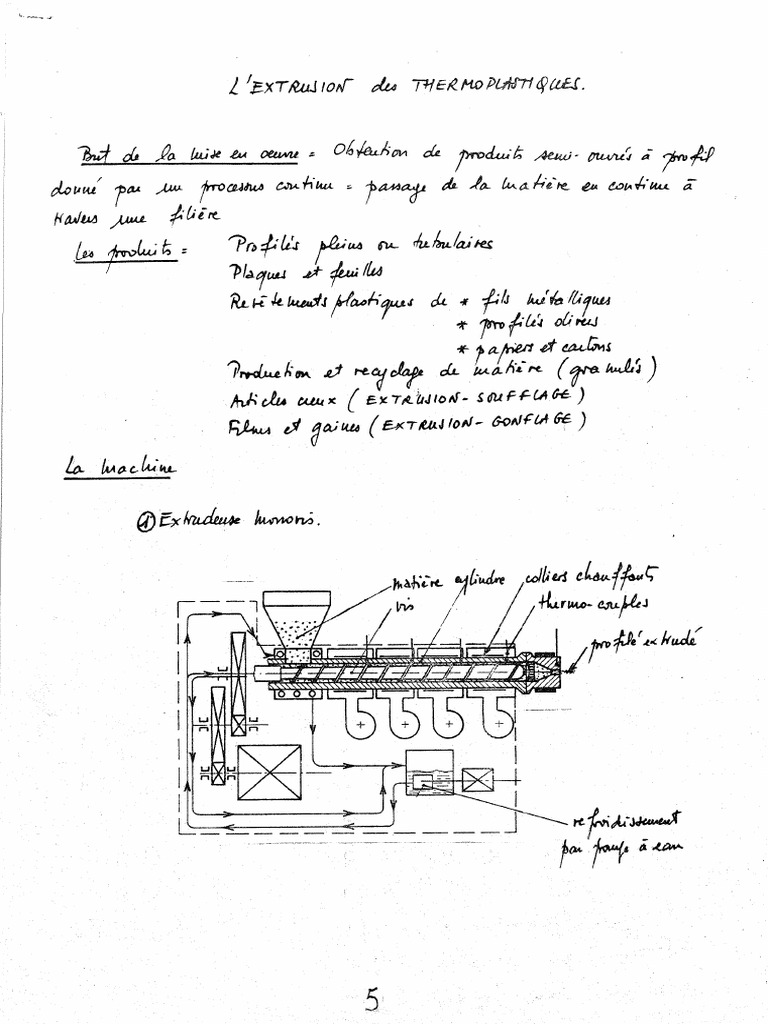 L'EXTRUSION des THERMOPLASTIQUES.
But de la mise en œuvre = Obtention de produits semi-ouvrés à profil
donné par un processus continu = passage de la matière en continu à
travers une filière
Les produits = Profilés pleins ou tubulaires
Plaques et feuilles
Revêtements plastiques de * fils métalliques
* profilés divers
* papiers et cartons
Production et recyclage de matière (granulés)
Articles creux (EXTRUSION-SOUFFLAGE)
Films et gaines (EXTRUSION-GONFLAGE)
La machine
① Extrudeuse monovis.
matière cylindre colliers chauffants
vis thermo-couples
profilé extrudé
refroidissement
par pompe à eau
5